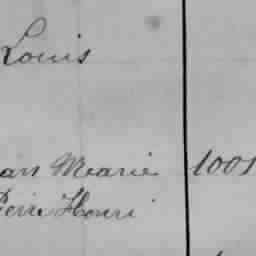 Louis
an Marie 1001
Pierre Henri